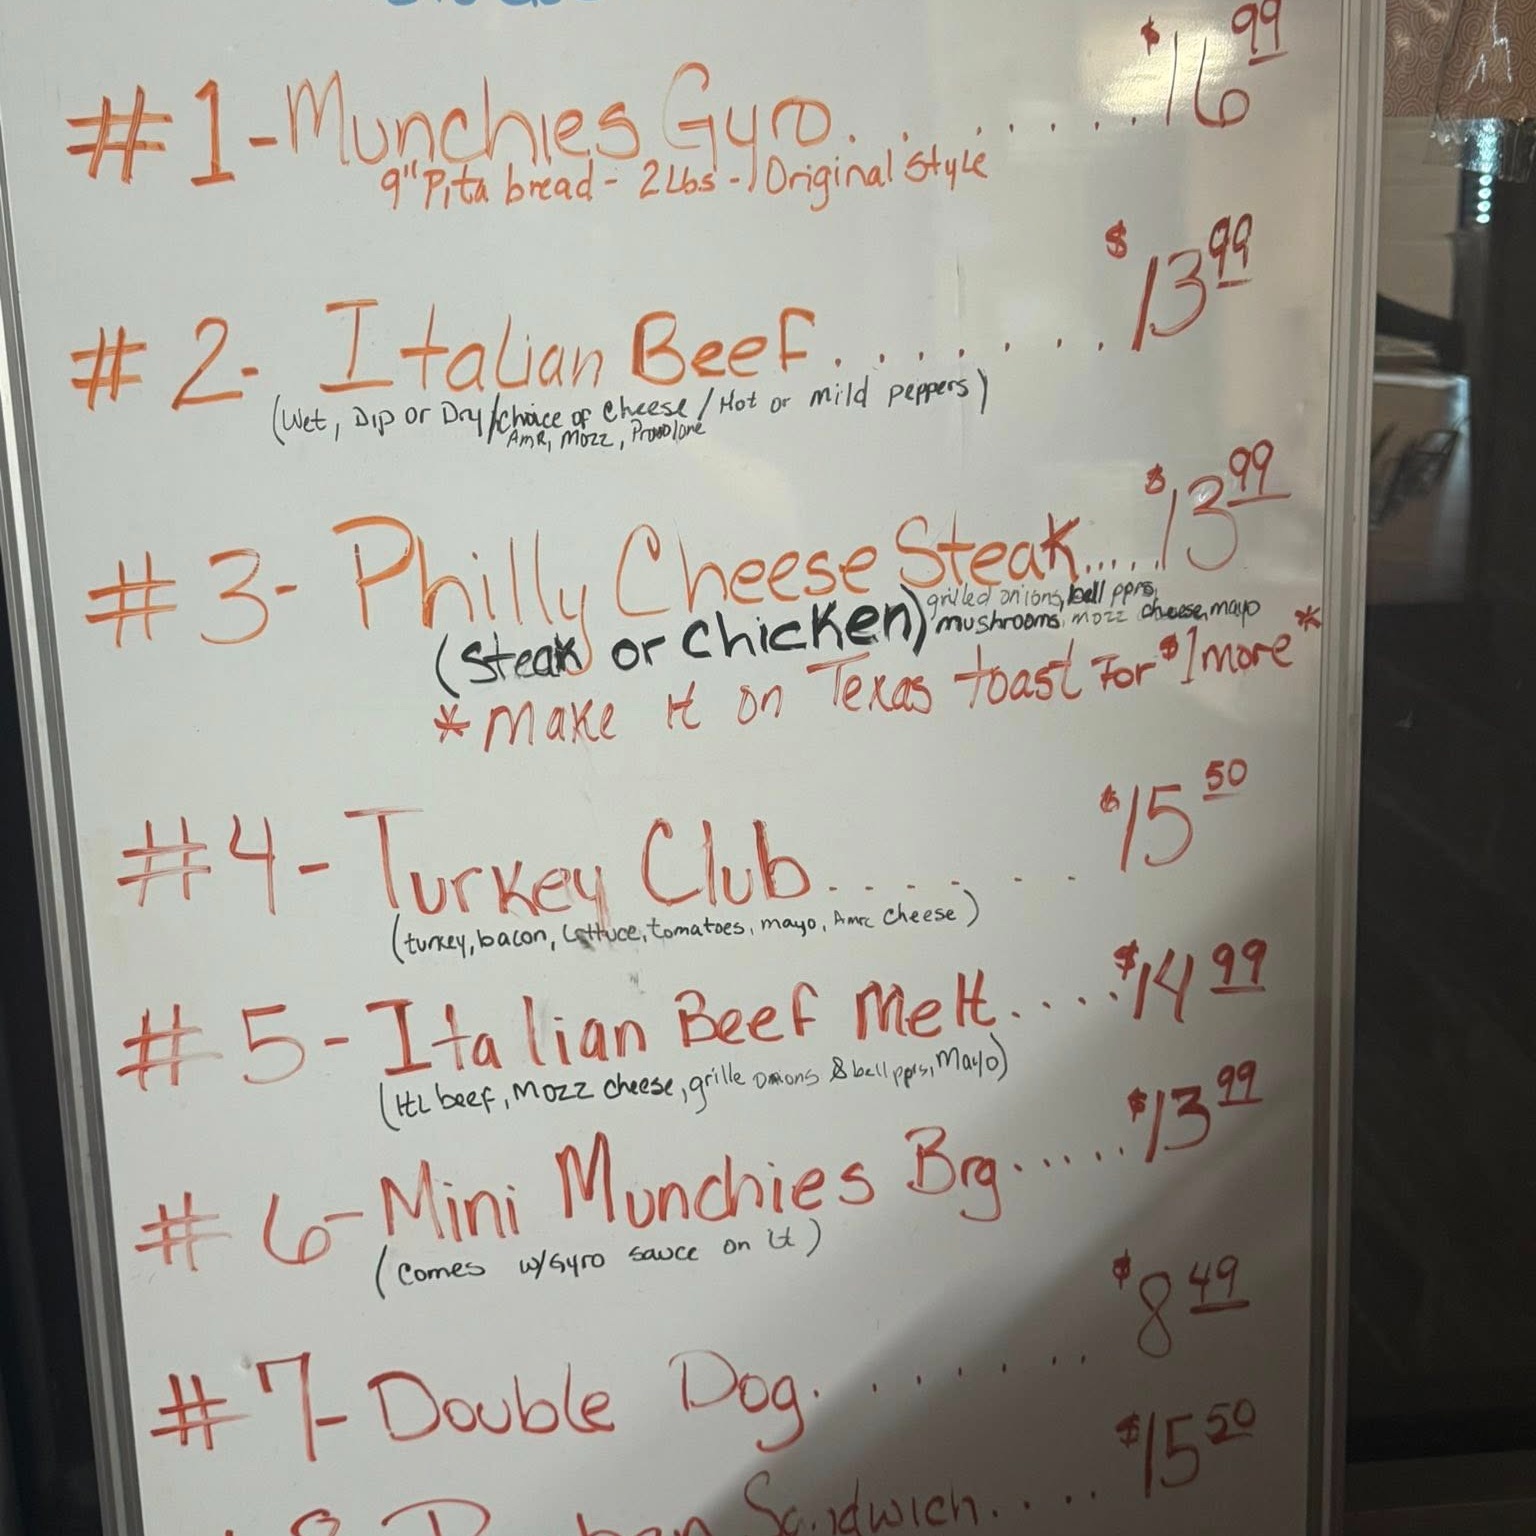 $16 99
#1-Munchies Gyro..........
9" Pita bread - 2Lbs - Original Style
#2- Italian Beef........ $13 99
(Wet, Dip or Dry/Choice of Cheese/Hot or mild peppers)
AMR, Mozz, Provolone
#3- Philly Cheese Steak..... $13 99
(Steak or Chicken) grilled onions, bell pprs,
mushrooms, mozz cheese, mayo
*Make it on Texas toast For $1 more*
#4- Turkey Club....... $15 50
(turkey, bacon, Lettuce, tomatoes, mayo, Amrc cheese)
#5- Italian Beef Melt..... $14 99
(Itl beef, Mozz cheese, grille onions & bell pprs, Mayo)
#6- Mini Munchies Brg...... $13 99
(Comes w/Gyro sauce on it)
#7- Double Dog....... $8 49
Sandwich..... $15 50